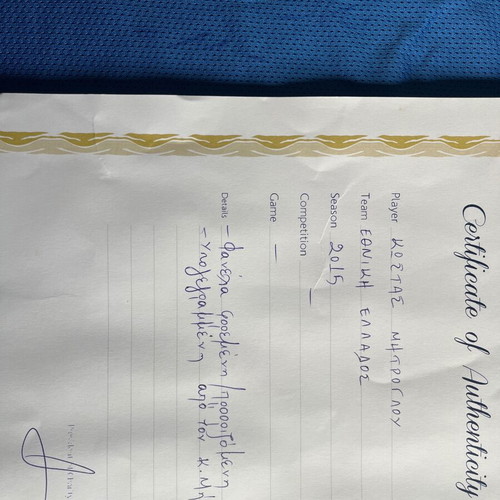 Certificate of Authenticity
Player ΚΩΣΤΑΣ ΜΗΤΡΟΓΛΟΥ
Team ΕΘΝΙΚΗ ΕΛΛΑΔΟΣ
Season 2015
Competition —
Game —
Details – Φανέλα φορεμένη / προοριζόμενη
– Υπογεγραμμένη από τον Κ. Μη